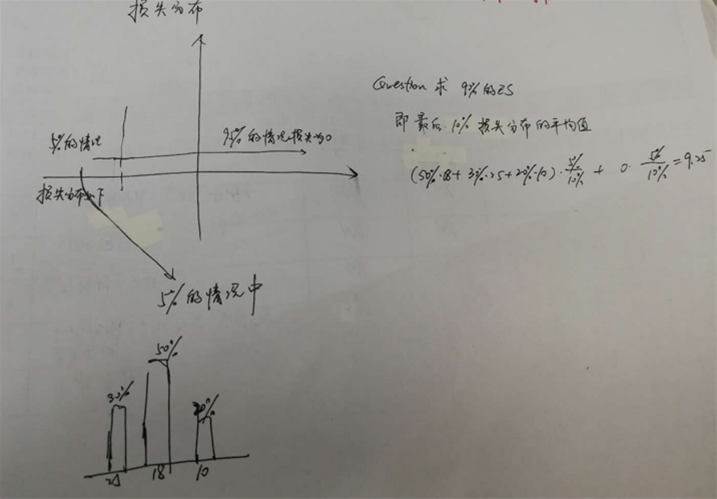 损失分布
5%的情况
95%的情况损失为0
损失分布如下
5%的情况中
30%
50%
20%
25
18
10
Question 求 90%的ES
即最后 10% 损失分布的平均值
(50%·18+30%·25+20%·10)·5%/10% + 0·5%/10%=9.25